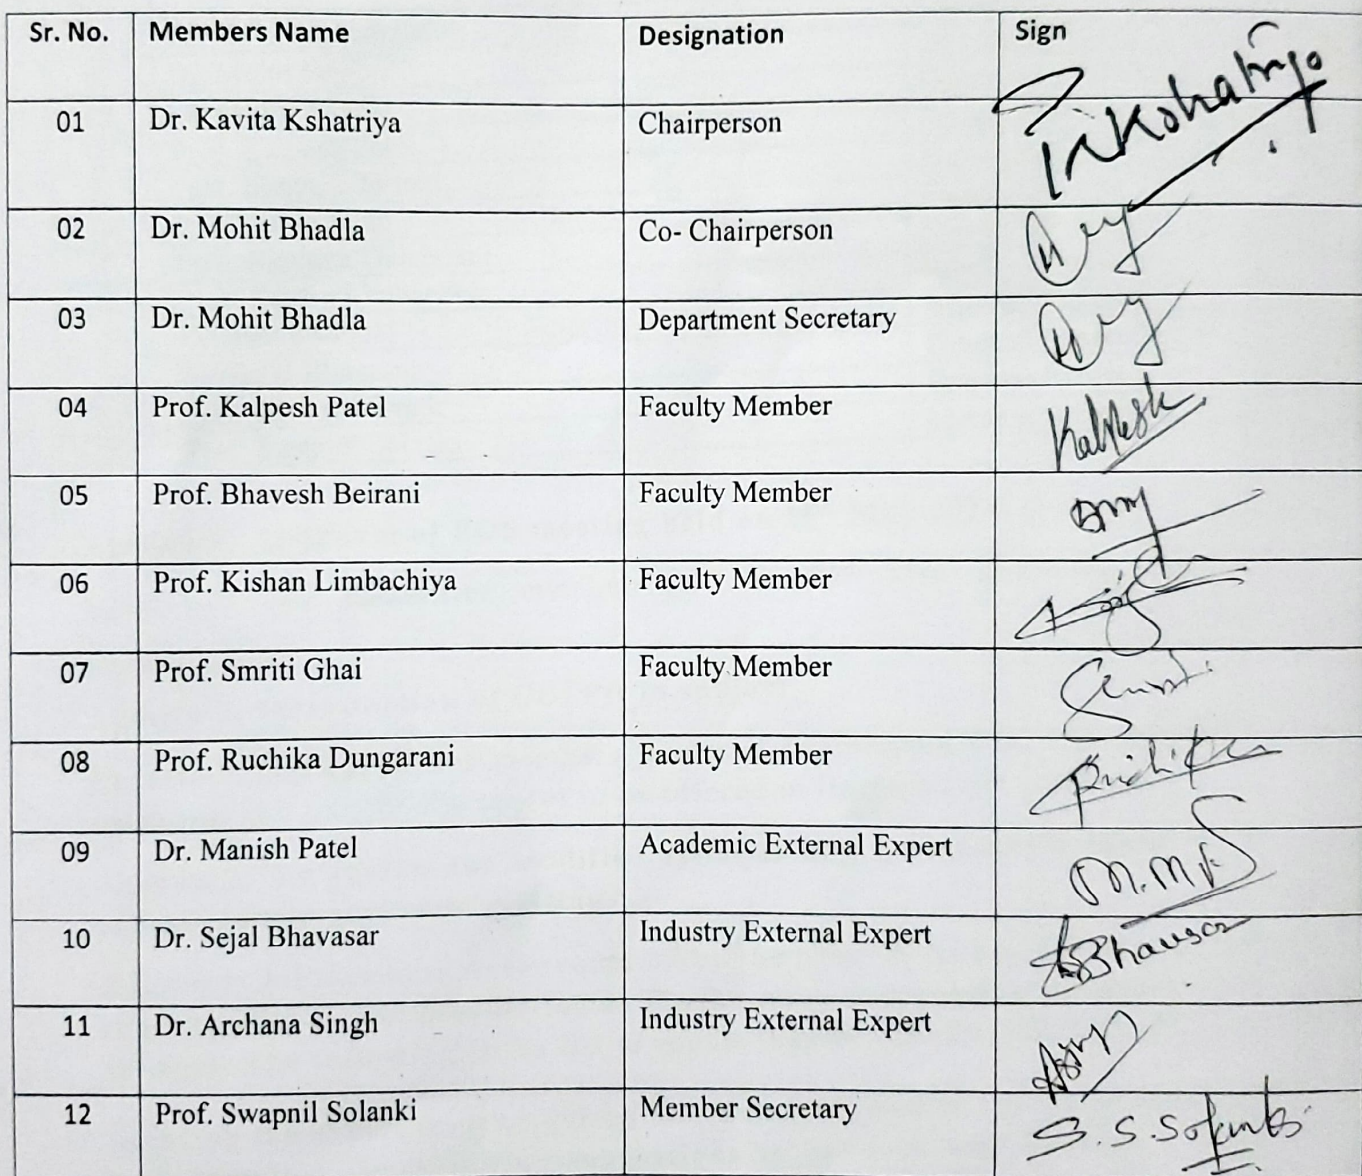 Sr. No. Members Name Designation Sign
01 Dr. Kavita Kshatriya Chairperson
02 Dr. Mohit Bhadla Co- Chairperson
03 Dr. Mohit Bhadla Department Secretary
04 Prof. Kalpesh Patel Faculty Member Kalpesh
05 Prof. Bhavesh Beirani Faculty Member
06 Prof. Kishan Limbachiya Faculty Member
07 Prof. Smriti Ghai Faculty Member
08 Prof. Ruchika Dungarani Faculty Member
09 Dr. Manish Patel Academic External Expert
10 Dr. Sejal Bhavasar Industry External Expert
11 Dr. Archana Singh Industry External Expert
12 Prof. Swapnil Solanki Member Secretary S. S. Solanki